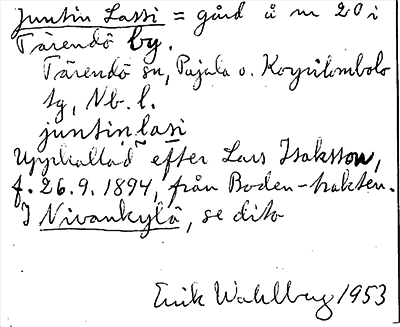 Juntin Lassi = gård å nr 20 i
Tärendö by.
Tärendö sn, Pajala o. Korpilombolo
tg, Nb. l.
juntin lasi
Uppkallad efter Lars Isaksson,
f. 26.9. 1894, från Boden-trakten.
I Nivankylä, se dito
Erik Wahlberg 1953